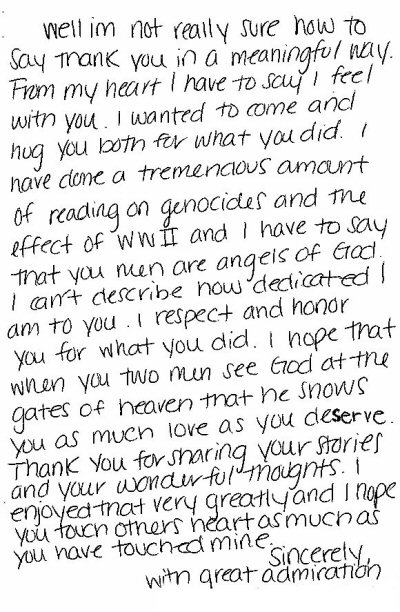 well im not really sure how to
say thank you in a meaningful way.
From my heart I have to say I feel
with you. I wanted to come and
hug you both for what you did. I
have done a tremendous amount
of reading on genocides and the
effect of WWII and I have to say
that you men are angels of God.
I can't describe how dedicated I
am to you. I respect and honor
you for what you did. I hope that
when you two men see God at the
gates of heaven that he shows
you as much love as you deserve.
Thank you for sharing your stories
and your wonderful thoughts. I
enjoyed that very greatly and I hope
you touch others heart as much as
you have touched mine.
Sincerely,
with great admiration